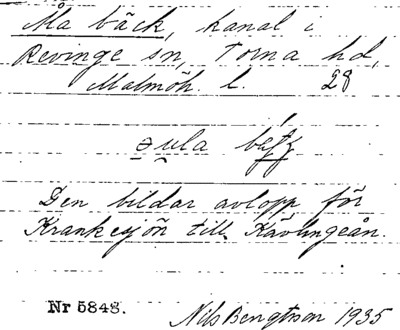 Åa bäck, kanal i
Revinge sn, Torna hd,
Malmöh. l. 28
Den bildar avlopp för
Krankesjön till Kävlingeån.
Nr 5848.
Nils Bengtsson 1935